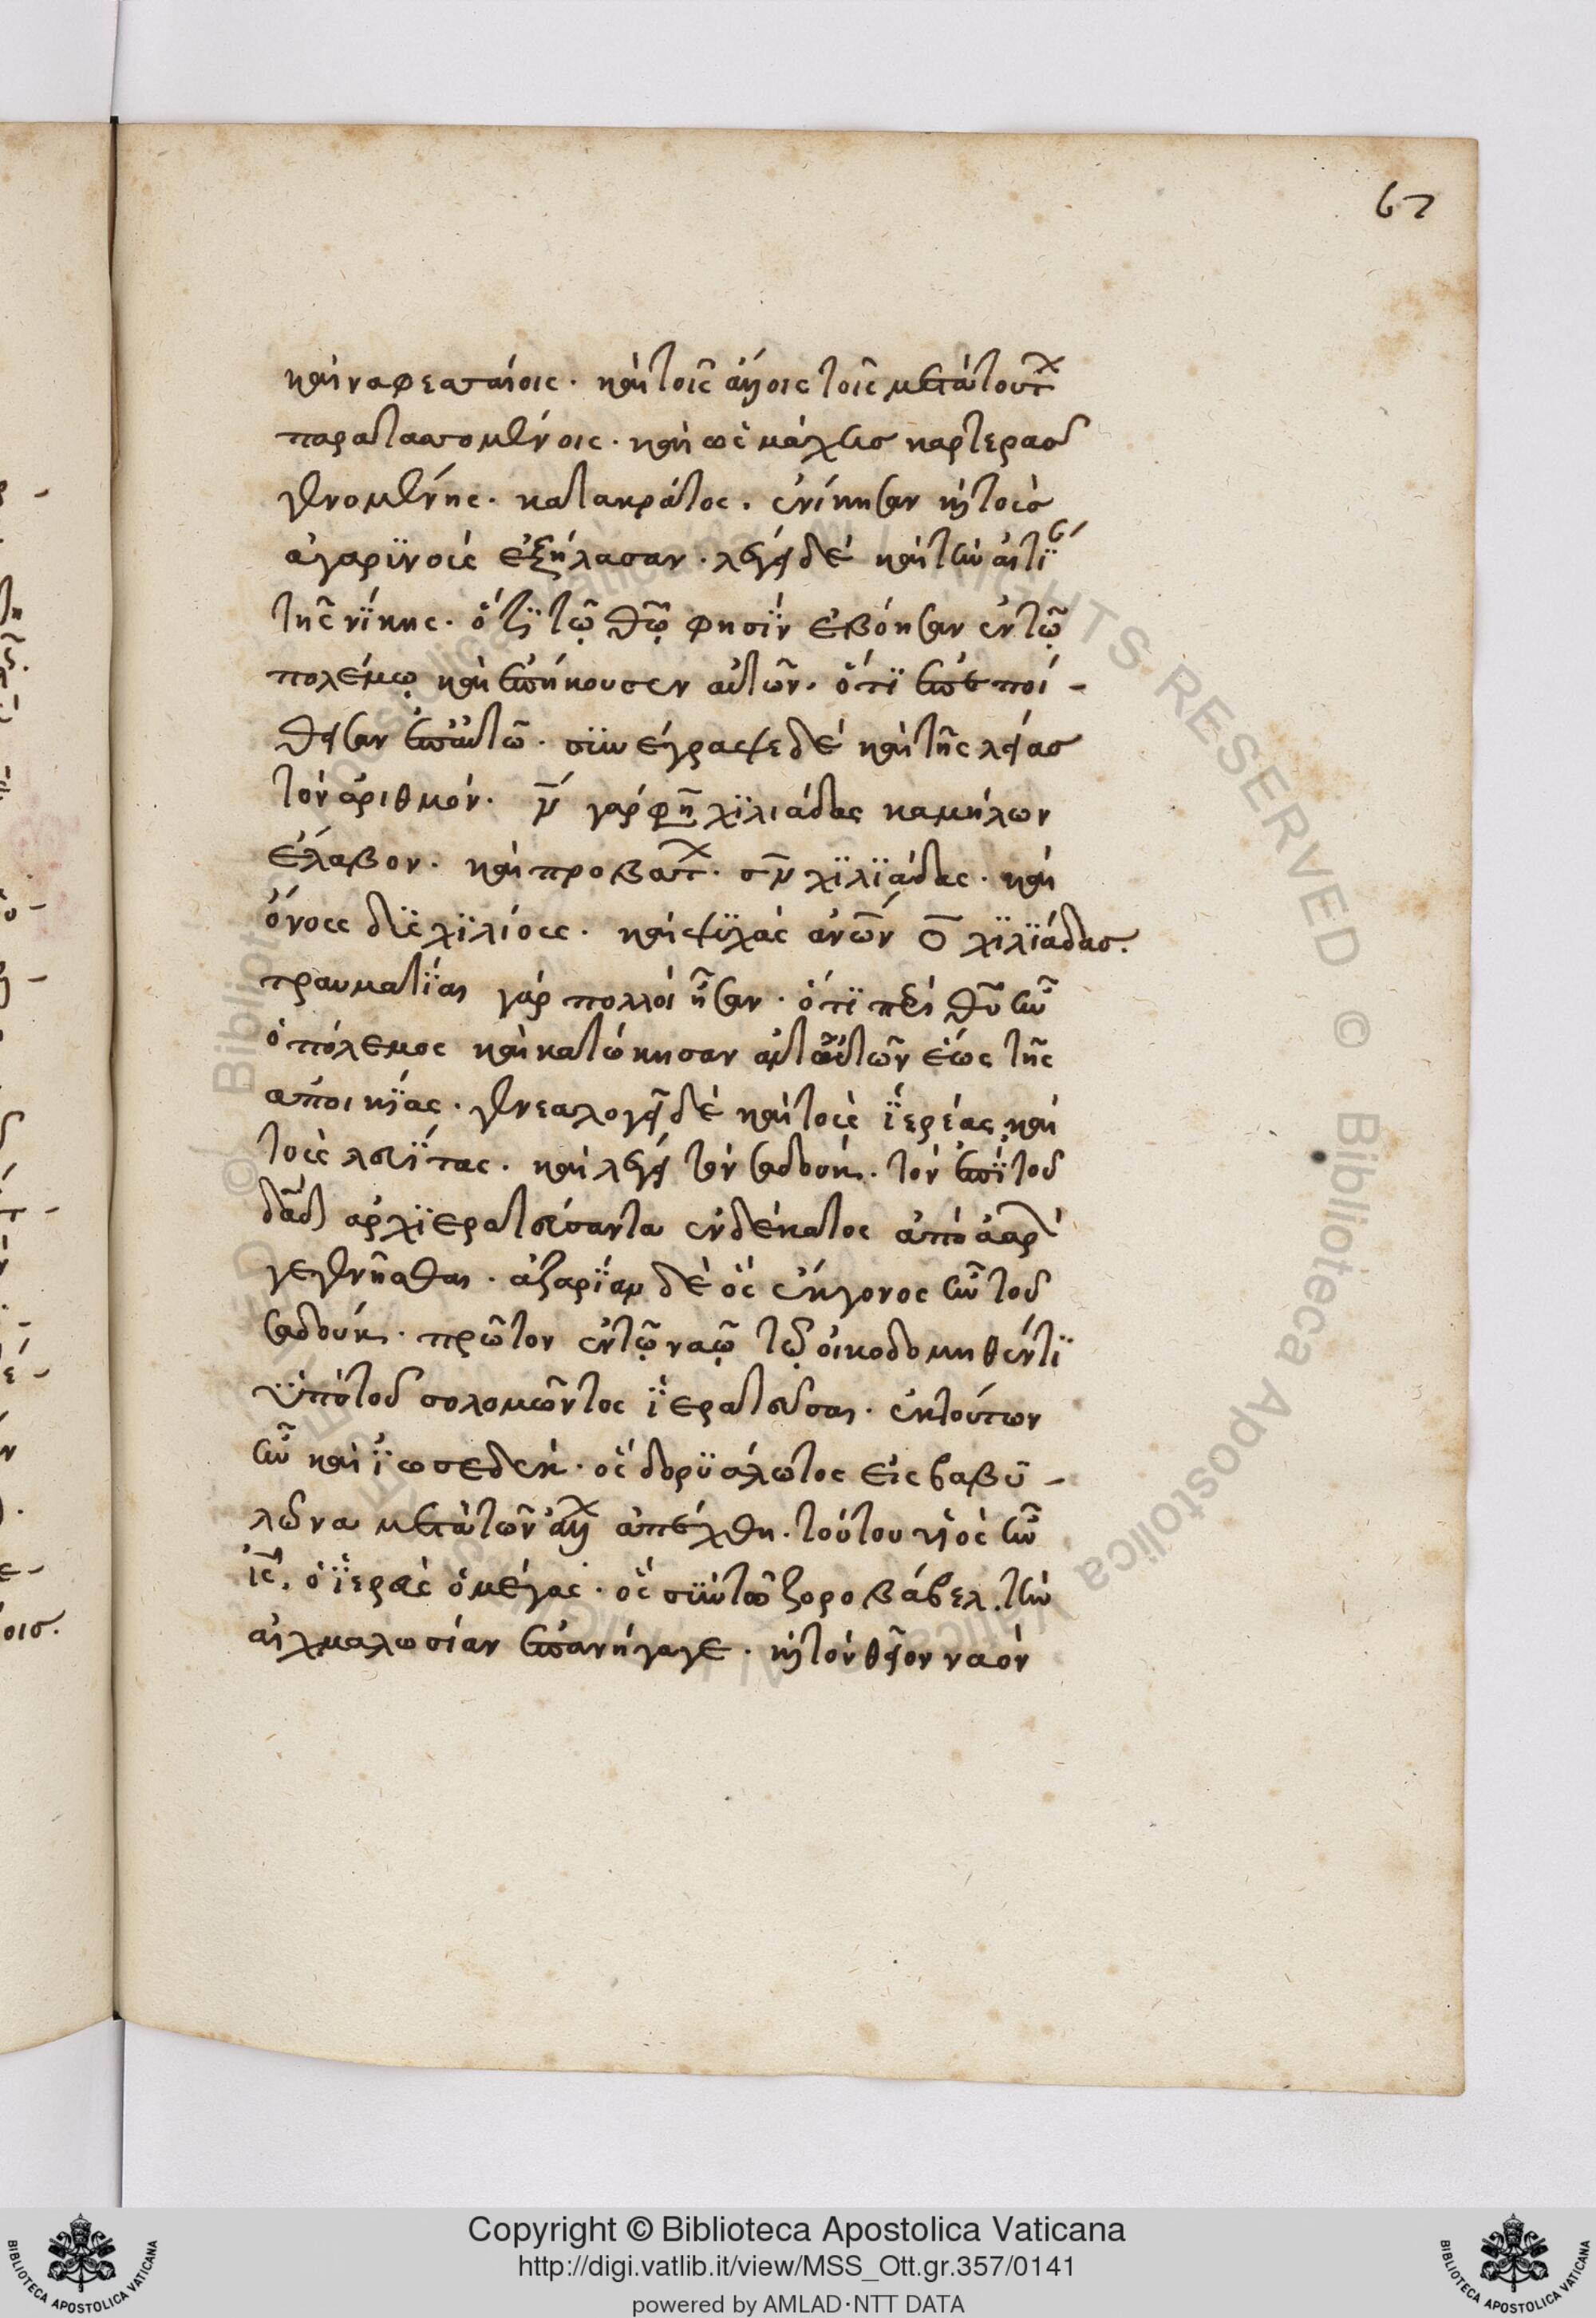 67
καὶ ναφεσαίοις. καὶ τοῖς ἄλλοις τοῖς μετὰ τούτ
παραταττομένοις. καὶ ὡς μάχης καρτερᾶσ
γενομένης. κατακράτος. ἐνίκησαν κ τοὺσ
ἀγαρϊνοὺς ἐξήλασαν. λέγει δὲ καὶ τὴν αἰτί
τῆς νίκης. ὅτϊ τῷ θῷ φησϊν ἐβόησαν ἐν τῷ
πολέμῳ καὶ ἐπήκουσεν αὐτῶν. ὅτϊ ἐπεποί-
θεισαν ἐπ αὐτῶ. συνέγραψε δὲ καὶ τῆς λείασ
τὸν ἀριθμόν. ν γάρ φη χϊλιάδας καμήλων
ἔλαβον. καὶ προβάτ. σν χϊλϊάδας. καὶ
ὄνους δϊς χϊλίους. καὶ ψυχὰς ἀνῶν ο χϊλϊάδασ.
τραυματίαι γὰρ πολλοὶ ἦσαν. ὅτϊ παρὰ θυ ἦν
ὁ πόλεμος καὶ κατώκησαν ἀντ αὐτῶν ἕως τῆς
ἀποικϊας. γενεαλογεῖ δὲ καὶ τοὺς ϊερέας καὶ
τοὺς λευΐτας. καὶ λέγει τὸν σαδδούκ. τὸν ἐπὶ τοῦ
δαδ ἀρχϊερατεύσαντα ἑνδέκατος ἀπὸ ἀαρ
γεγενῆσθαι. ἀζαρϊαν δὲ ὃς ἔκγονος ἦν τοῦ
σαδδούκ. πρῶτον ἐν τῷ ναῷ τῷ οἰκοδομηθέντϊ
ὑπὸ τοῦ σολομῶντος ϊερατεῦσαι. ἐκ τούτων
ἦν καὶ ϊωσεδέκ. ὃς δορϋάλωτος εἰς βαβυ-
λῶνα μετὰ τῶν ἄλλ ἀπήχθη. τούτου υἱὸς ἦν
ις, ὁ ϊερεὺς ὁ μέγας. ὃς σὺν τῶ ζοροβάβελ. τὴν
αἰχμαλωσίαν ἐπανήγαγε. κ τὸν θεῖον ναὸν
Copyright © Biblioteca Apostolica Vaticana
http://digi.vatlib.it/view/MSS_Ott.gr.357/0141
powered by AMLAD·NTT DATA